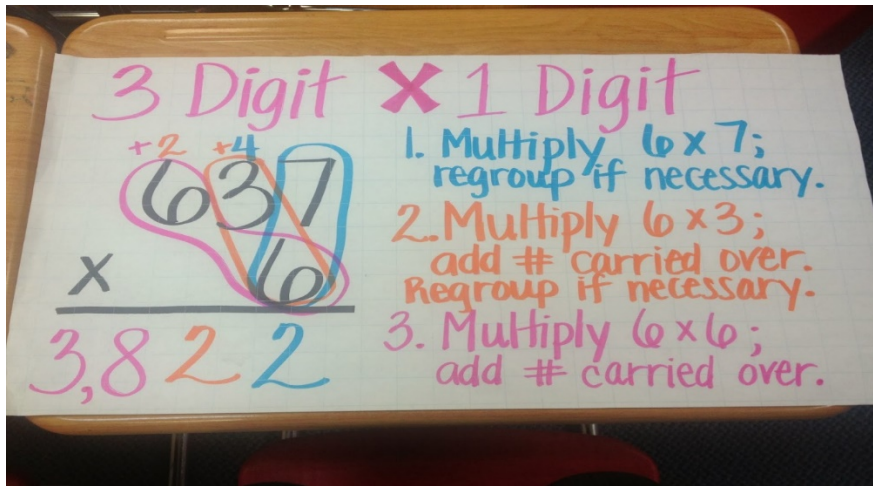 3 Digit X 1 Digit
+2 +4
637
x 6
3,822
1. Multiply 6 x 7;
regroup if necessary.
2. Multiply 6 x 3;
add # carried over.
Regroup if necessary.
3. Multiply 6 x 6;
add # carried over.